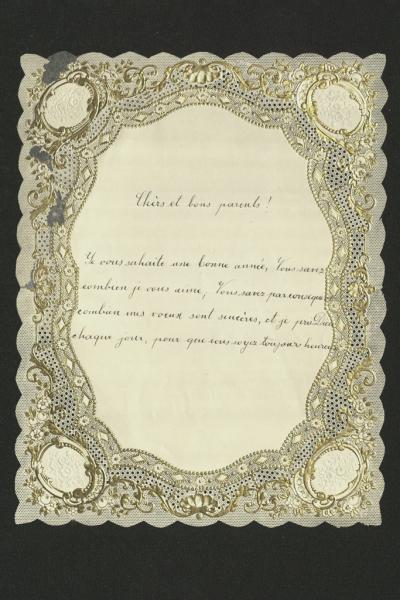 Chèrs et bons parents!
Je vous suhaite une bonne année, Vous savez
combien je vous aime, Vous savez par conséquent
combien mes voeux sont sincères, et je prie Dieu
chaque jour, pour que vous soyez toujours heureux